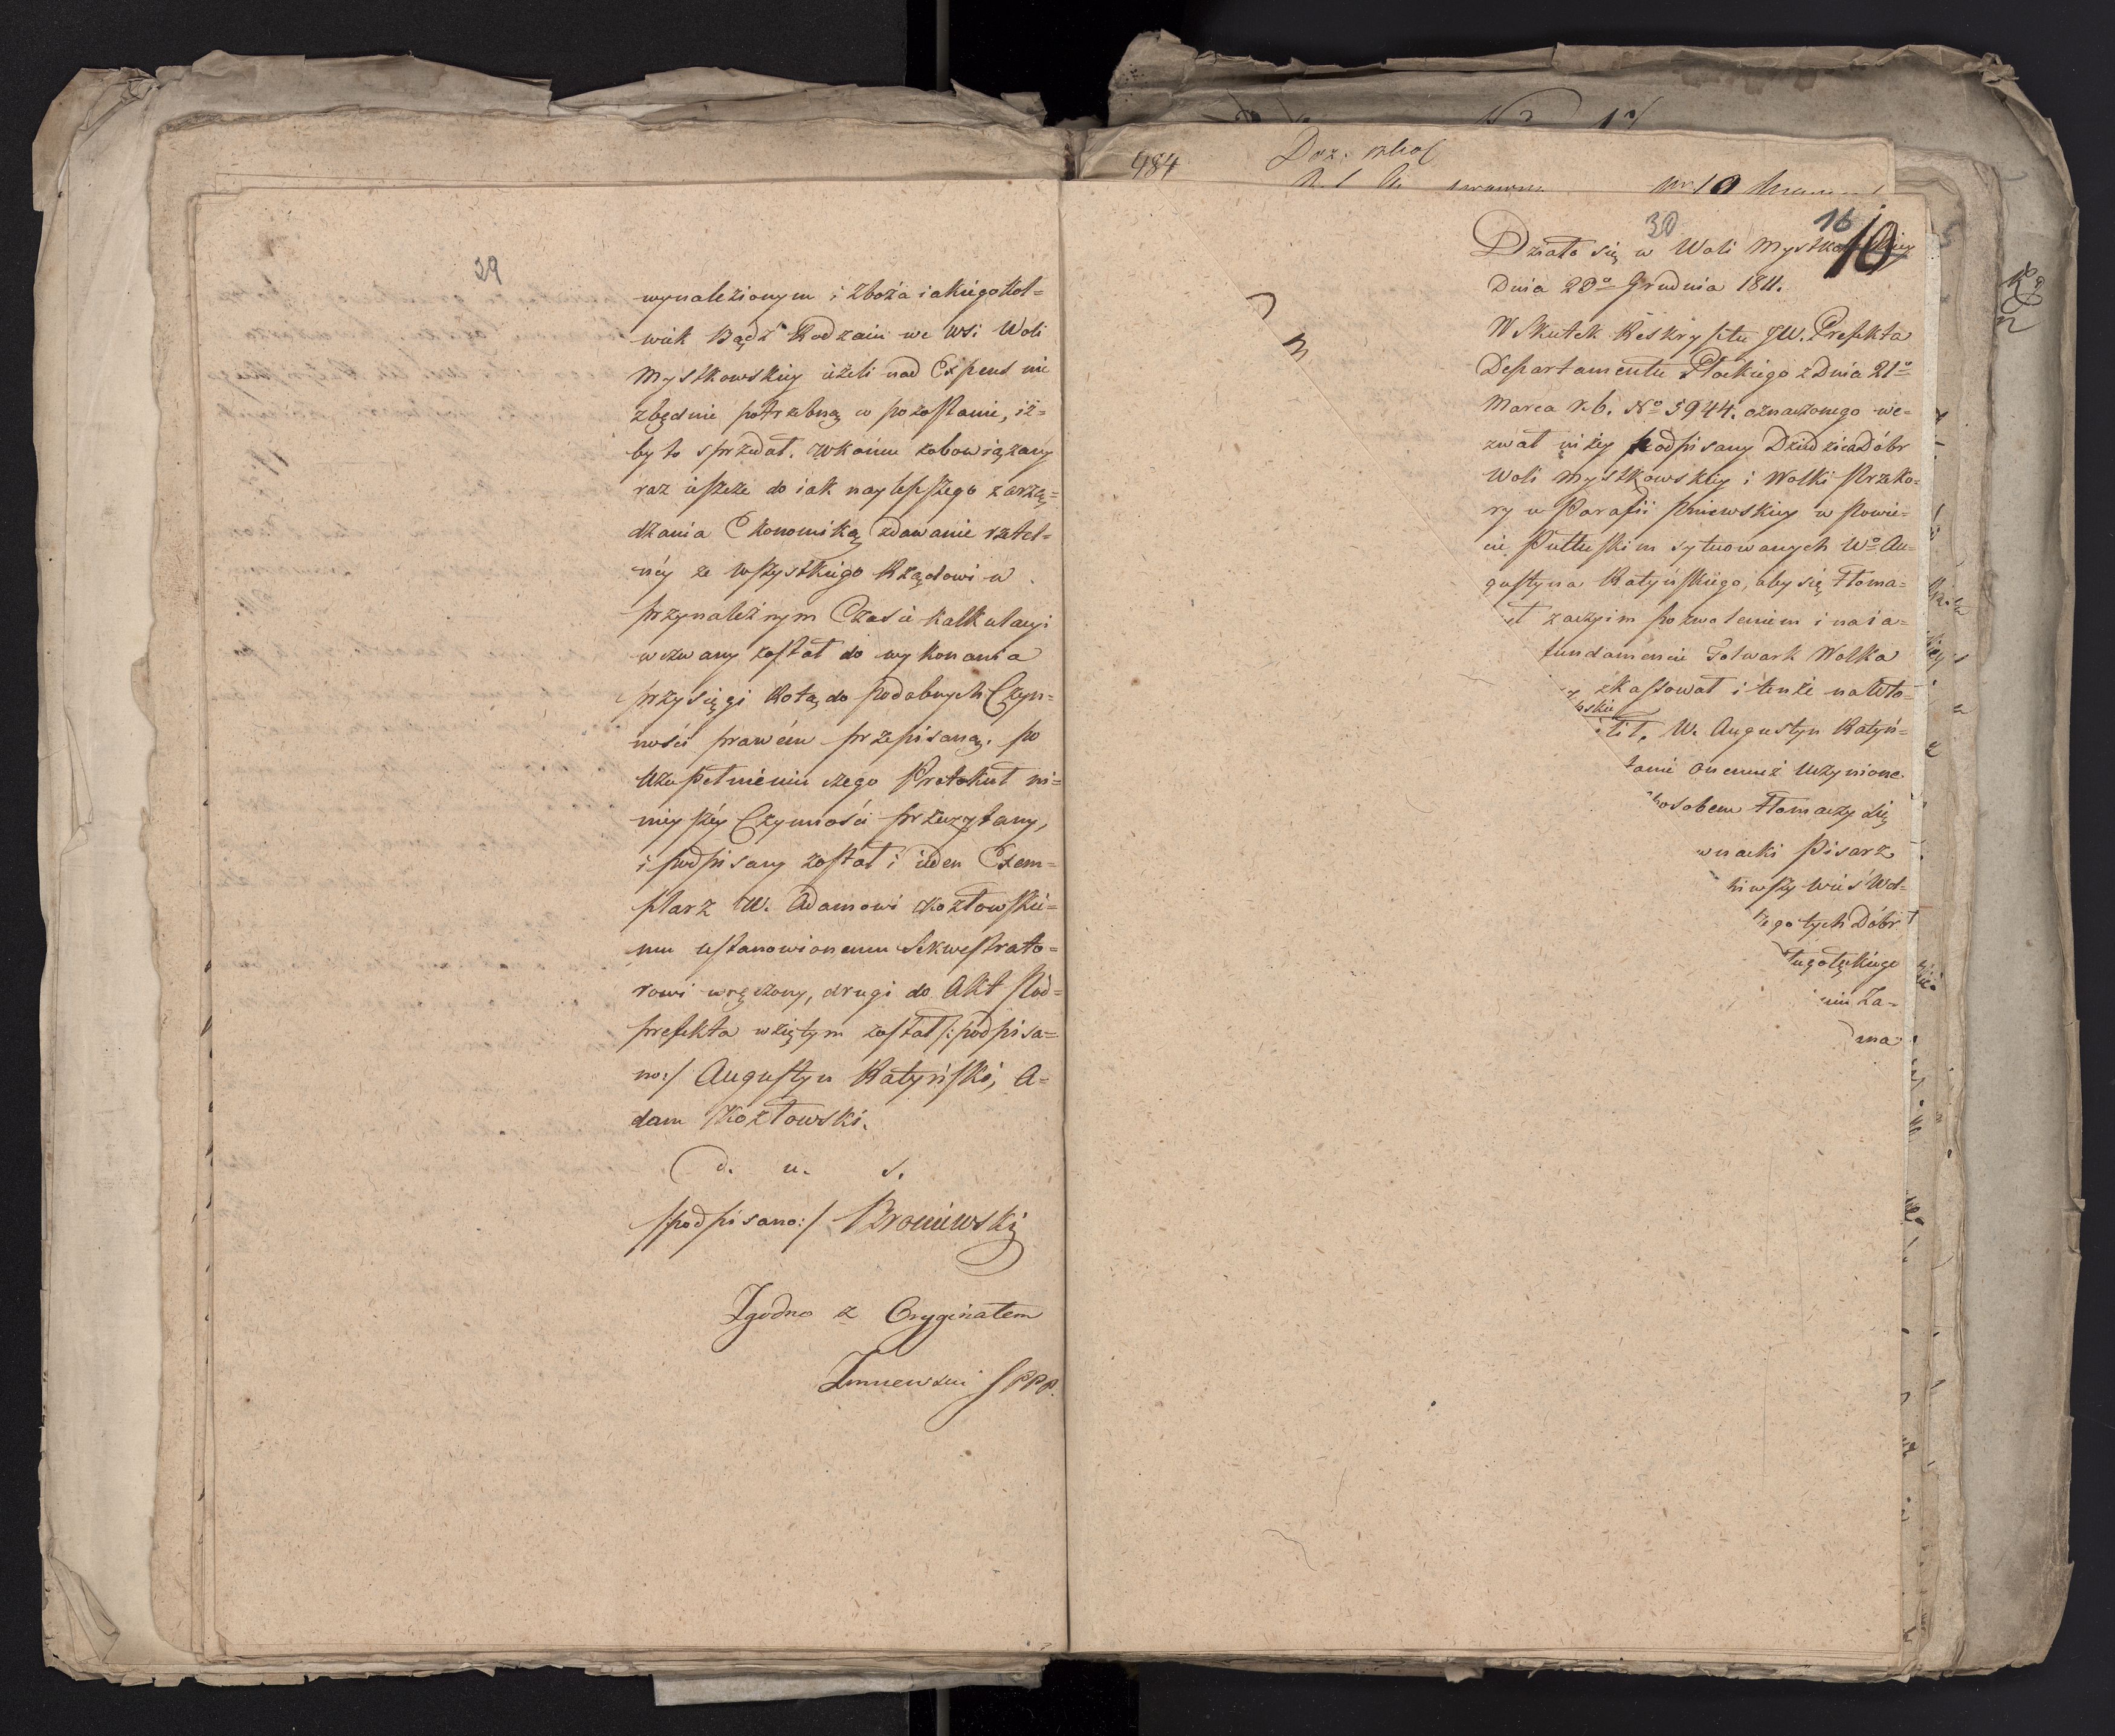 29
wynalezionym i Zboża iakiegokol=
wiek Bądź Rodzaiu we Wsi Woli
Mystkowskiey ieżeli nad Expens nie
zbędnie potrzebną w pozostanie, iż=
by to sprzedał. Wkońcu zobowiązany
raz ieszcze do iak naylepszego zarzą=
dzania Ekonomiką zdawanie rzetel=
néy ze wszystkiego Rządowi w
przynależnym Czasie kalkulacyi
wezwany został do wykonania
przysięgi Rotą do podobnych Czyn=
ności prawem przepisaną. po
uzupełnieniu czego Protokuł ni=
nieyszéy Czynności przeczytany,
i podpisany został i ieden Exem=
plarz W. Adamowi Kozłowskie=
mu ustanowionemu Sekwestrato=
rowi wręczony, drugi do Akt Pod=
prefekta wziętym został /:podpisa=
no:/ Augustyn Katyński, A=
dam Kozłowski.
d. u. s.
/podpisano:/ Broniewski
Zgodno z Oryginałem
SPPP.
484
Doz:
30 16
10
Działo się w Woli Mystkowskiey
Dnia 20º Grudnia 1811.
W Skutek Reskryptu JW. Prefekta
Departamentu Płockiego z Dnia 21º
Marca r. b. Nº 5944. oznaczonego we=
zwał niżey podpisany Dziedzica Dóbr
Woli Mystkowskiey i Wolki Przeko=
ry w Parafii Pniewskiey w Powie=
cie Pułtuskim sytuowanych Wº Au=
gustyna Katyńskiego, aby się tłoma=
ł zaczyim pozwoleniem i na ia=
fundamencie Folwark Wolka
zkassował i tenże na Wło=
oskie
W. Augustyn Katyń=
tanie onemuż uczynione
posobem tłomaczy się
wnacki Pisarz
wszy wieś Wol=
tych Dóbr
nie Za=
ma